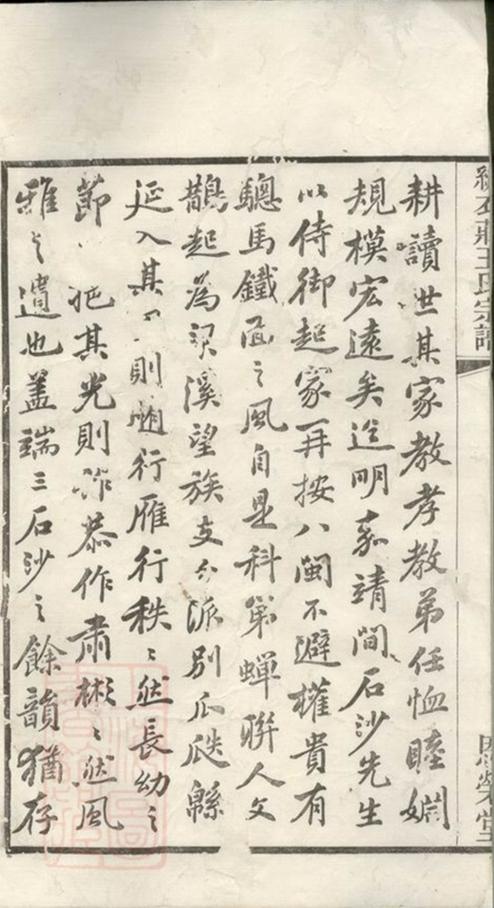 王氏宗譜
耕讀世其家教孝教弟任恤睦婣
規模宏遠矣迨明嘉靖間石沙先生
以侍御起家再按八閩不避權貴有
驄馬鐵面之風自是科第蟬聯人文
鵲起為梁溪望族支分派別瓜瓞緜
延入其 則隨行雁行秩〻然長幼之
節 挹其光則祚恭作肅彬〻然風
雅之遺也蓋端三石沙之餘韻猶存
思榮堂